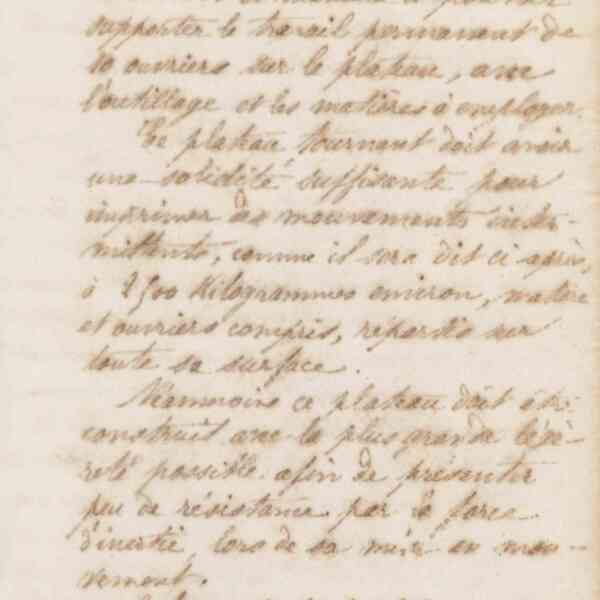 supporter le travail permanent de
10 ouvriers sur le plateau, avec
l'outillage et les matières à employer.
Ce plateau tournant doit avoir
une solidité suffisante pour
imprimer des mouvements inter-
mittents, comme il sera dit ci après,
à 2500 Kilogrammes environ, matière
et ouvriers compris, répartis sur
toute sa surface.
Néanmoins ce plateau doit être
construit avec la plus grande légè-
reté possible afin de présenter
peu de résistance par la force
d'inertie, lors de sa mise en mou-
vement.